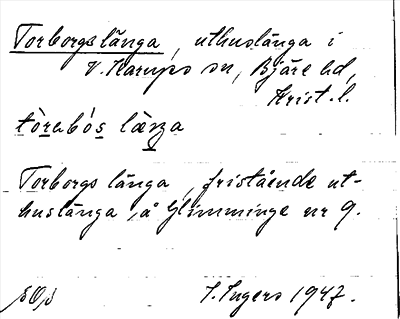 Torborgslänga, uthuslänga i
V. Karups sn, Bjäre hd,
Krist. l.
Torborgs länga, fristående ut-
huslänga, å Glimminge nr 9.
I. Ingers 1947.